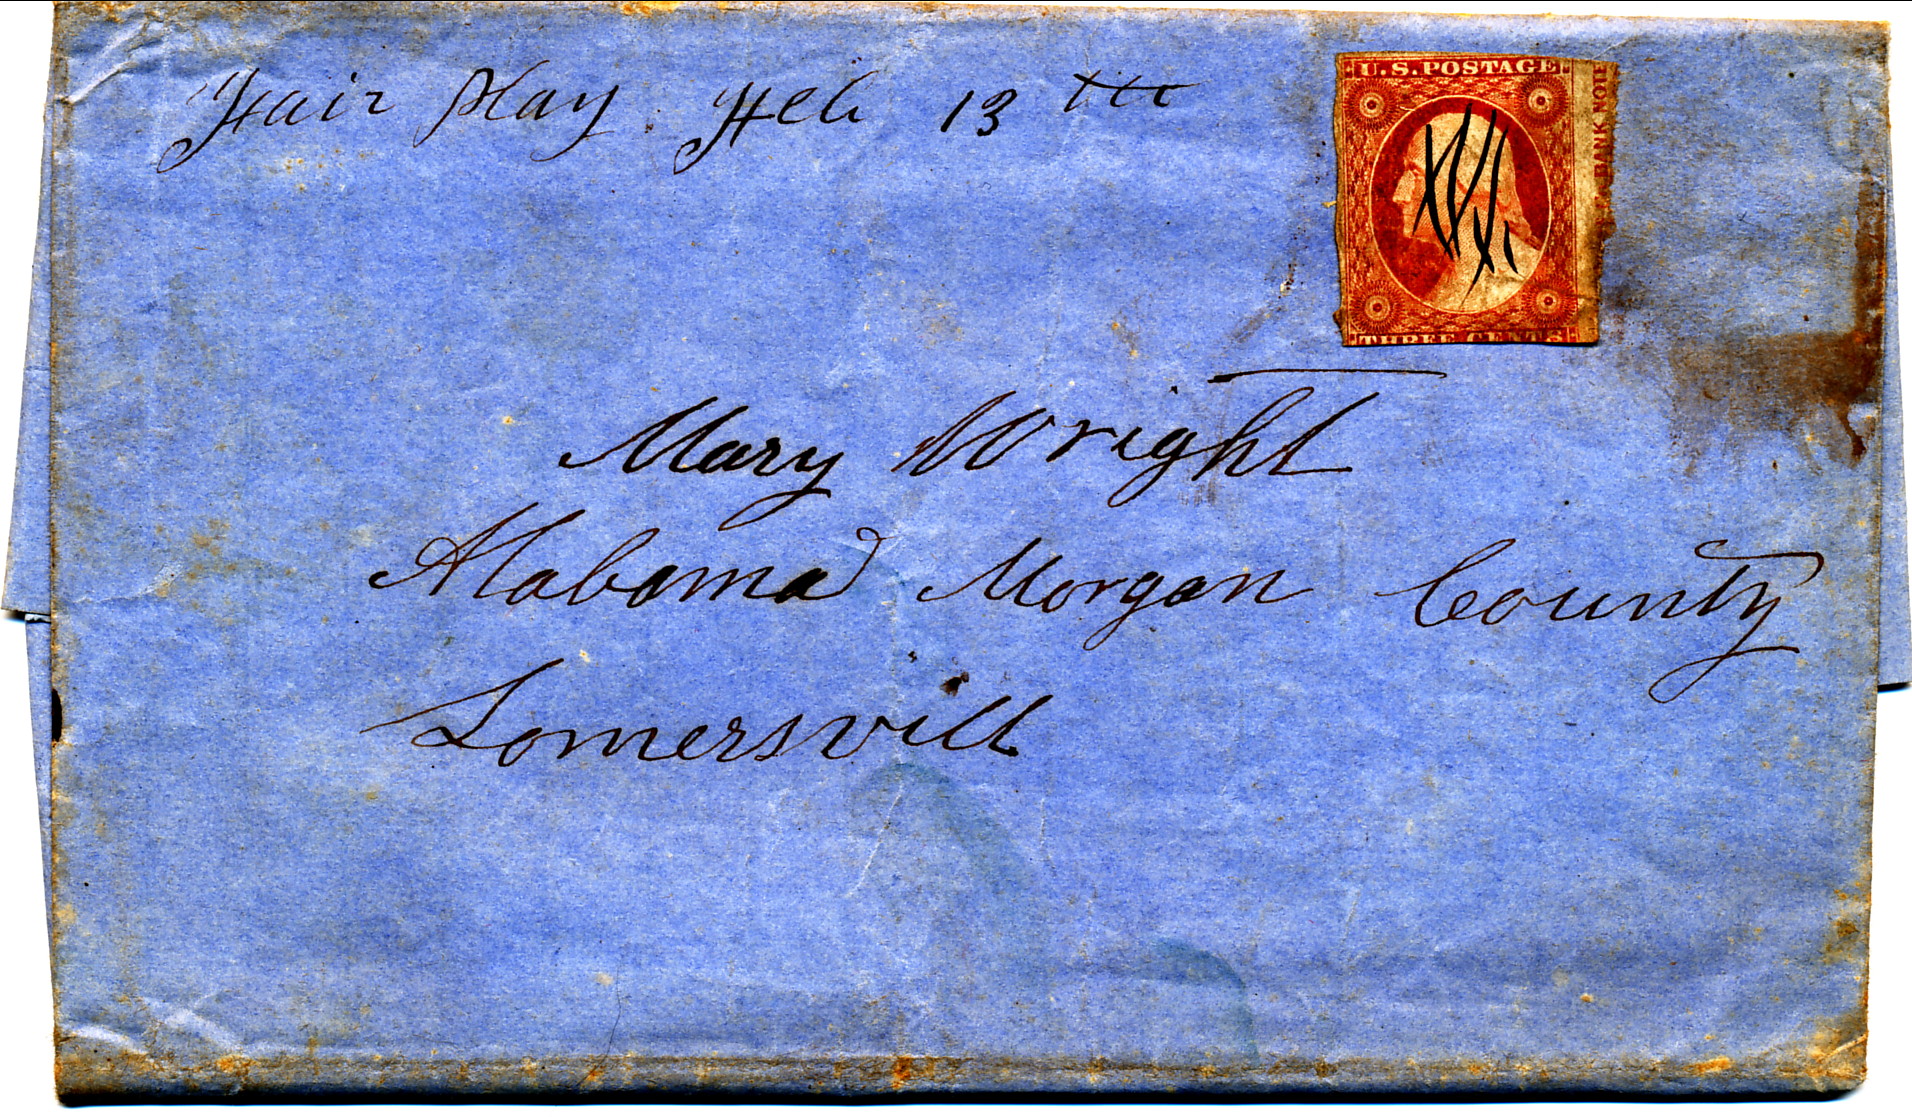 Fair Play Feb 13th
U.S. POSTAGE
BANK NOTE
THREE CENTS
Mary Wright
Alabama Morgan County
Somersvill